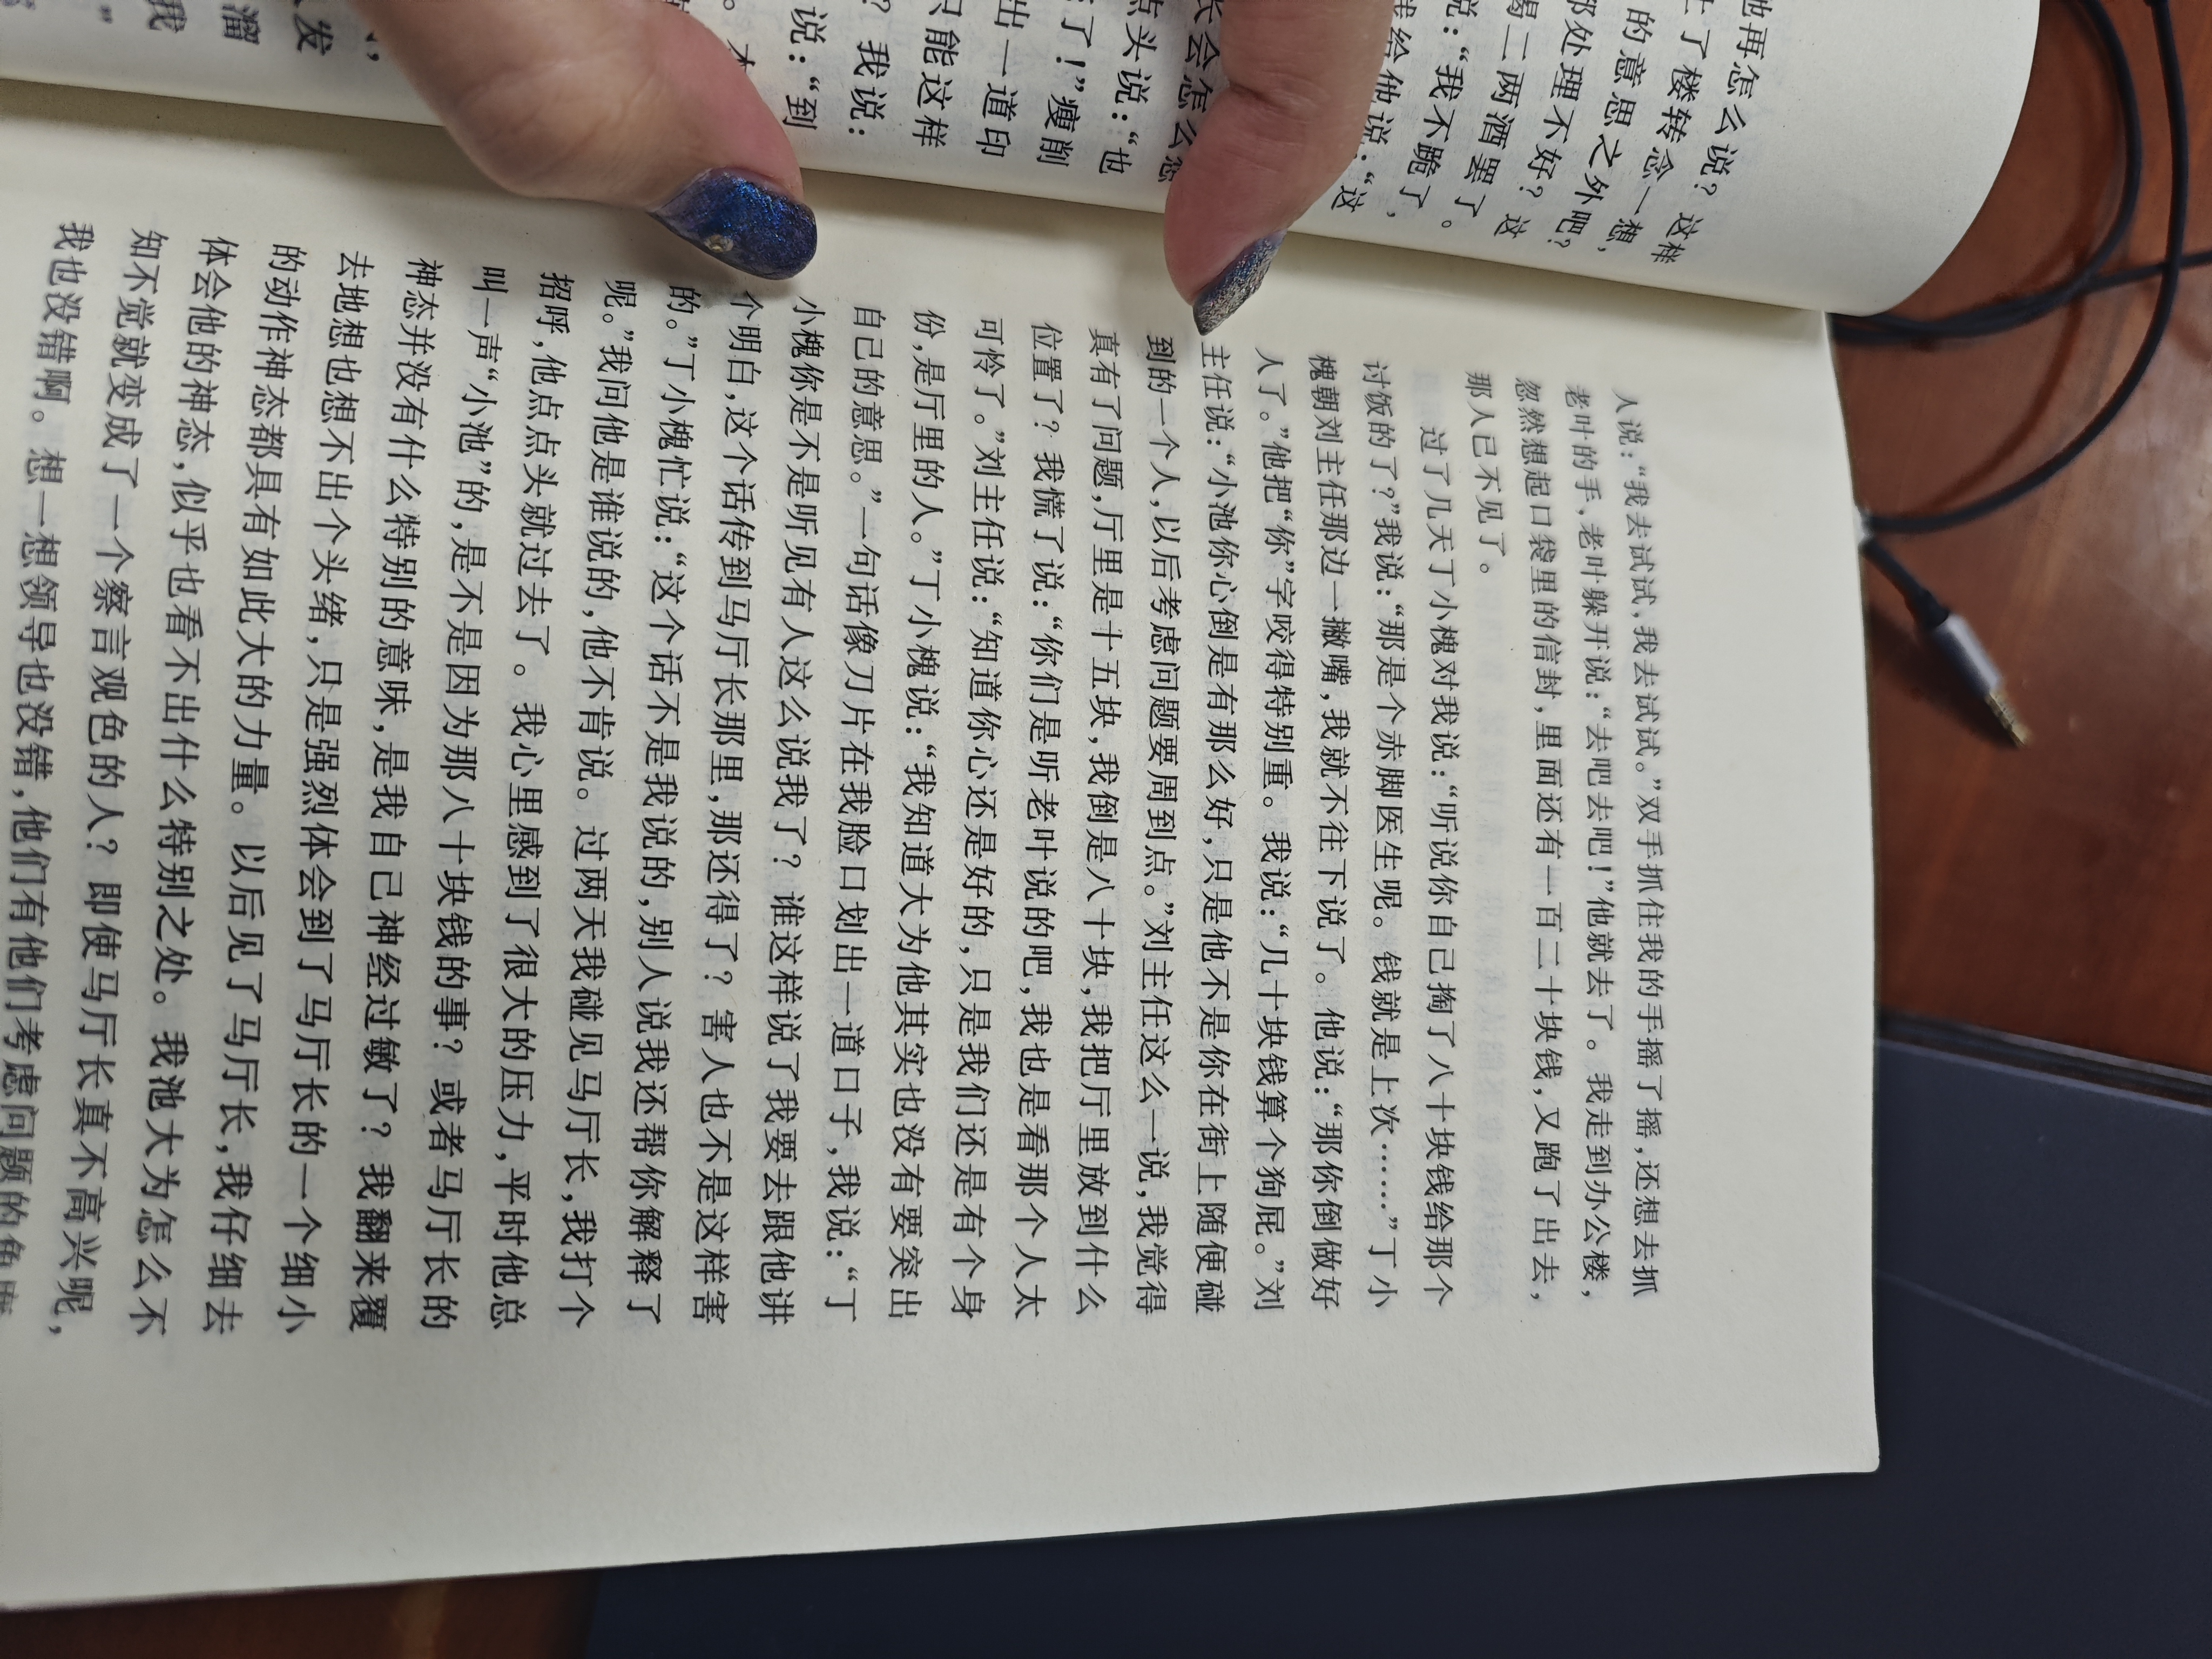 他再怎么说？这样
上了楼转念一想，
的意思之外吧？
那处理不好？这
喝二两酒罢了。
说：“我不跪了，
钱给他说：“这
长会怎么想
点头说：“也
了！”瘦削
出一道印
只能这样
？我说：
说：“到
发
溜
我
人说：“我去试试，我去试试。”双手抓住我的手摇了摇，还想去抓
老叶的手，老叶躲开说：“去吧去吧！”他就去了。我走到办公楼，
忽然想起口袋里的信封，里面还有一百二十块钱，又跑了出去，
那人已不见了。
过了几天丁小槐对我说：“听说你自己掏了八十块钱给那个
讨饭的了？”我说：“那是个赤脚医生呢。钱就是上次……”丁小
槐朝刘主任那边一撇嘴，我就不往下说了。他说：“那你倒做好
人了。”他把“你”字咬得特别重。我说：“几十块钱算个狗屁。”刘
主任说：“小池你心倒是有那么好，只是他不是你在街上随便碰
到的一个人，以后考虑问题要周到点。”刘主任这么一说，我觉得
真有了问题，厅里是十五块，我倒是八十块，我把厅里放到什么
位置了？我慌了说：“你们是听老叶说的吧，我也是看那个人太
可怜了。”刘主任说：“知道你心还是好的，只是我们还是有个身
份，是厅里的人。”丁小槐说：“我知道大为他其实也没有要突出
自己的意思。”一句话像刀片在我脸口划出一道口子，我说：“丁
小槐你是不是听见有人这么说我了？谁这样说了我要去跟他讲
个明白，这个话传到马厅长那里，那还得了？害人也不是这样害
的。”丁小槐忙说：“这个话不是我说的，别人说我还帮你解释了
呢。”我问他是谁说的，他不肯说。过两天我碰见马厅长，我打个
招呼，他点点头就过去了。我心里感到了很大的压力，平时他总
叫一声“小池”的，是不是因为那八十块钱的事？或者马厅长的
神态并没有什么特别的意味，是我自己神经过敏了？我翻来覆
去地想也想不出个头绪，只是强烈体会到了马厅长的一个细小
的动作神态都具有如此大的力量。以后见了马厅长，我仔细去
体会他的神态，似乎也看不出什么特别之处。我池大为怎么不
知不觉就变成了一个察言观色的人？即使马厅长真不高兴呢，
我也没错啊。想一想领导也没错，他们有他们考虑问题的角度